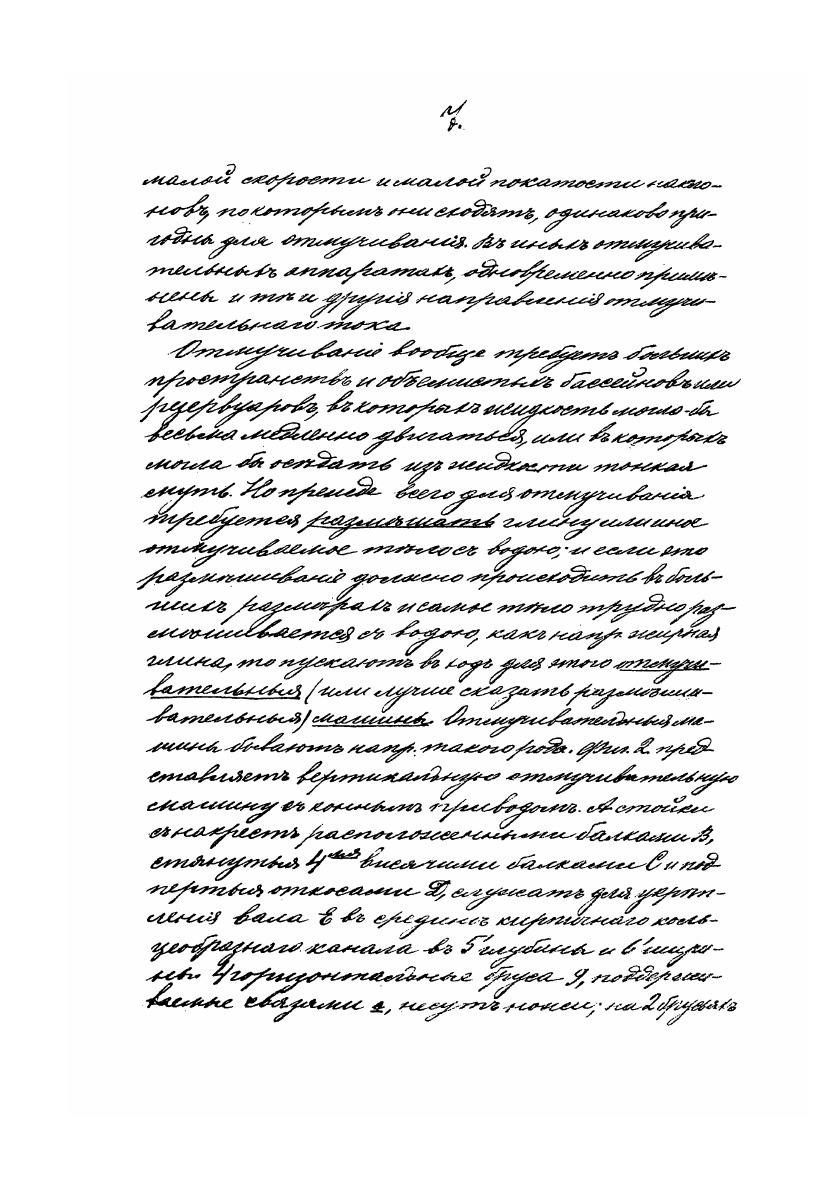 малой скорости и малой покатости накло-
новъ, по которымъ они сходятъ, одинаково при-
годны для отмучиванія. Въ иныхъ отмучива-
тельныхъ аппаратахъ, одновременно примѣ-
нены и тѣ и другія направленія отмучи-
вательнаго тока.
Отмучиваніе вообще требуетъ большихъ
пространствъ и объемистыхъ бассейновъ или
резервуаровъ, въ которыхъ жидкость могла-бы
весьма медленно двигаться, или въ которыхъ
могла бы осѣдать изъ жидкости тонкая
муть. Но прежде всего для отмучиванія
требуется размѣшать глину или иное
отмучиваемое тѣло съ водою; и если это
размѣшиваніе должно происходить въ боль-
шихъ размѣрахъ и самое тѣло трудно раз-
мѣшивается съ водою, какъ напр. жирная
глина, то пускаютъ въ ходъ для этого отмучи-
вательныя (или лучше сказать размѣши-
вательныя) машины. Отмучивательныя ма-
шины бываютъ напр. такого рода. Фиг. 2 пред-
ставляетъ вертикальную отмучивательную
машину съ коннымъ приводомъ. А стойки
съ накрестъ расположенными балками В,
стянутыя 4мя висячими балками С и под
пертыя откосами D, служатъ для укрѣп-
ленія вала Е въ срединѣ кирпичнаго коль-
цеобразнаго канала въ 5' глубины и 6' шири-
ны. 4 горизонтальные бруса g, поддержи-
ваемые связями, несутъ ножи; на 2 брусьяхъ